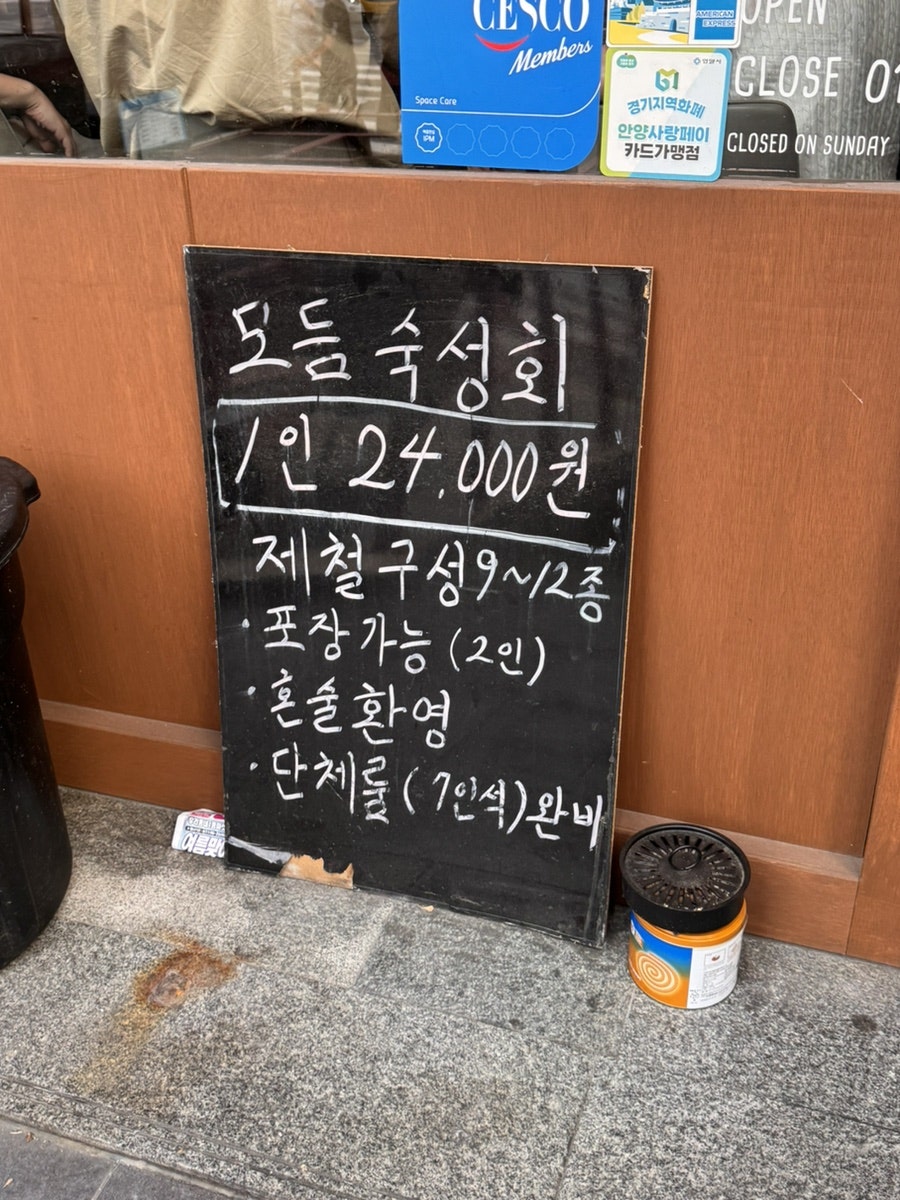 CESCO
Members
Space Care
IPM
AMERICAN
EXPRESS
경기지역화폐
안양사랑페이
카드가맹점
OPEN
CLOSE
CLOSED ON SUNDAY
모듬 숙성회
1인 24,000원
제철구성9~12종
·포장가능 (2인)
·혼술환영
·단체룸 (7인석)완비